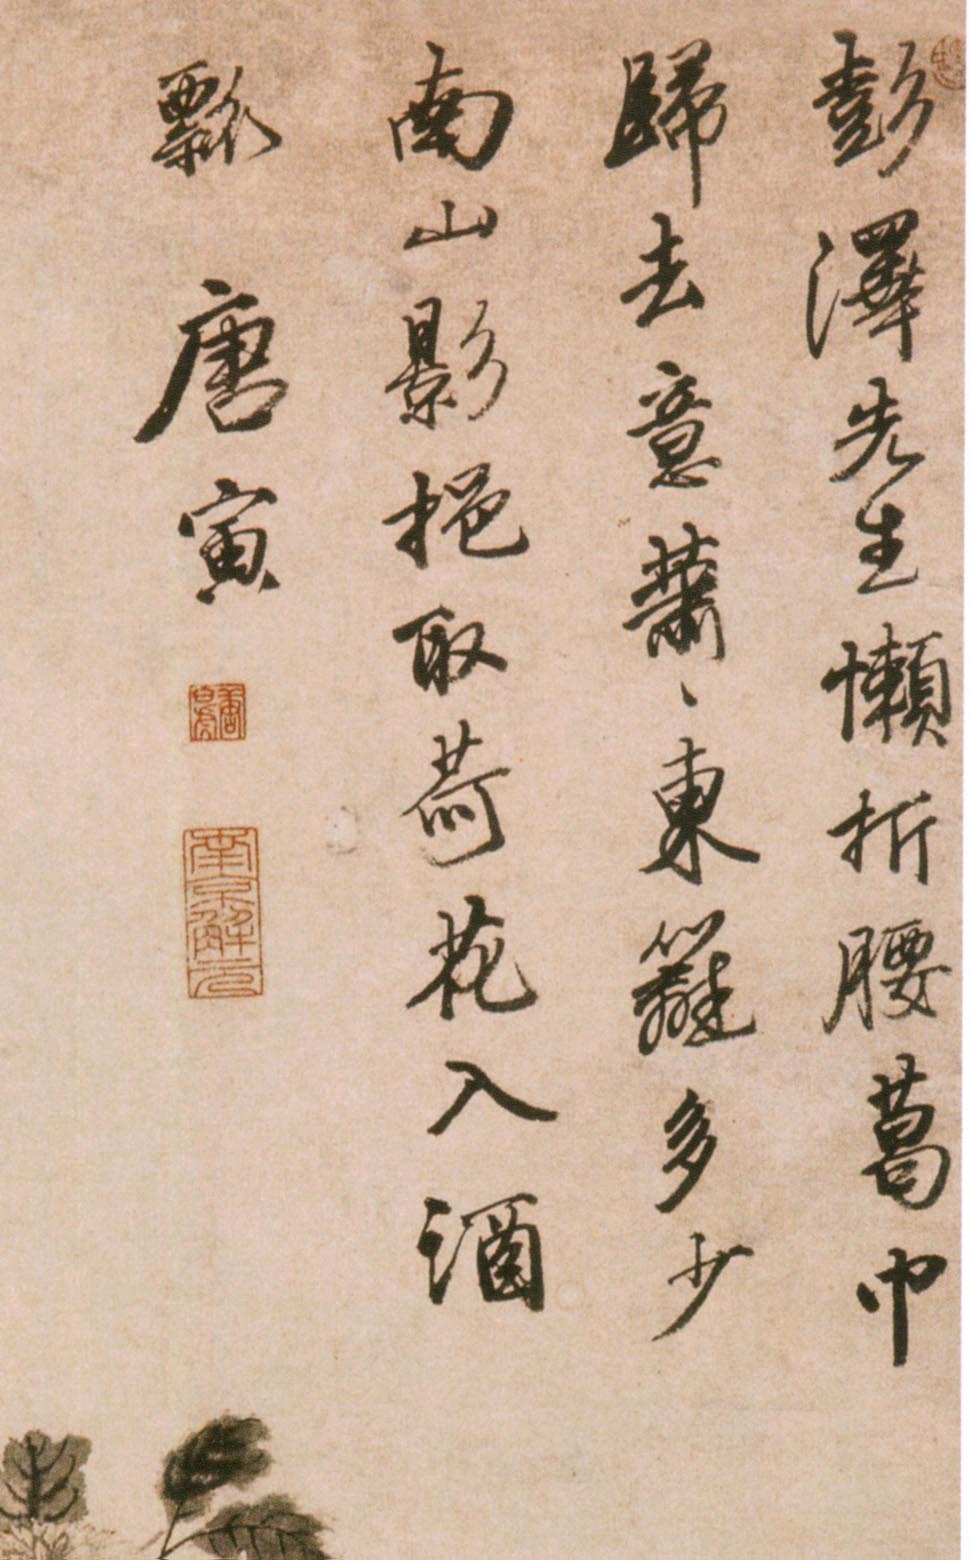 彭澤先生懶折腰葛巾
歸去意蕭〻東籬多少
南山影挹取荷花入酒
瓢
唐寅
南京解元